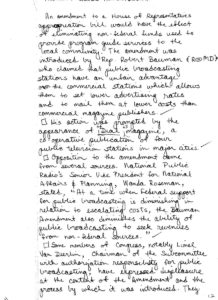 An amendment to a House of Representatives
appropriation bill would have the effect
of eliminating non-federal funds used to
provide program guide services to the
local community. The amendment was
introduced by Rep Robert Bauman (R
who claimed that public broadcasting
stations have an unfair advantage
over commercial stations which allows
them to set lower advertising rates
and to mail them at lower costs than
commercial magazine publishers.
His action was prompted by the
appearance of Dial magazine, a
co operative publication of four
public television stations in major cities.
Opposition to the amendment came
from several sources. National Public
Radio's Senior Vice President for National
Affairs & Planning, Wanda Townsend,
stated, "At a time when federal support
for public broadcasting is diminishing in
relation to escalating costs, the Bauman
Amendment also diminishes the ability of
public broadcasting to seek revenues
from non-federal sources."
Some members of Congress, notably Lionel
Van Deerlin, Chairman of the Subcommittee
with authorization responsibility for public
broadcasting have expressed displeasure
at the content of the Amendment and the
process by which it was introduced. They